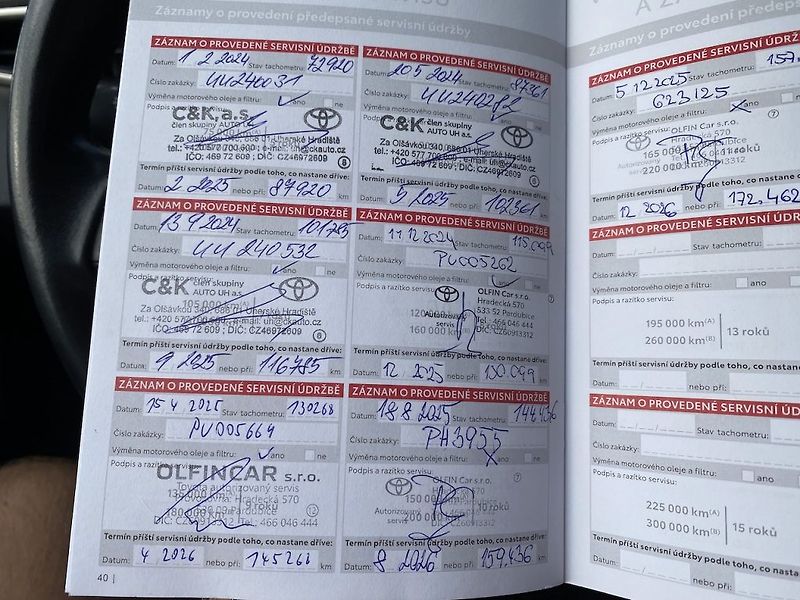 Záznamy o provedení předepsané servisní údržby
ZÁZNAM O PROVEDENÉ SERVISNÍ ÚDRŽBĚ
Datum: 1 2 2024 Stav tachometru: 72920
Číslo zakázky: UU240031
Výměna motorového oleje a filtru: ✓ano ne
Podpis a razítko servisu:
C&K, a.s.
člen skupiny AUTO UH
Za Olšávkou 340, 686 01 Uherské Hradiště
tel.: +420 577 700 600; e-mail: uh@ckauto.cz
IČO: 469 72 609; DIČ: CZ46972609
8
Termín příští servisní údržby podle toho, co nastane dříve:
Datum: 2 2025 nebo při: 87920 km
ZÁZNAM O PROVEDENÉ SERVISNÍ ÚDRŽBĚ
Datum: 20 5 2024 Stav tachometru: 87361
Číslo zakázky:
Výměna motorového oleje a filtru: ano ne
Podpis a razítko servisu:
C&K člen skupiny
AUTO UH a.s.
Za Olšávkou 340, 686 01 Uherské Hradiště
tel.: +420 577 700 600; e-mail: uh@ckauto.cz
IČO: 469 72 609; DIČ: CZ46972609
8
Termín příští servisní údržby podle toho, co nastane dříve:
Datum: 5 2025 nebo při: 102361 km
ZÁZNAM O PROVEDENÉ SERVISNÍ ÚDRŽBĚ
Datum: 13 9 2024 Stav tachometru: 101785
Číslo zakázky: UU 240532
Výměna motorového oleje a filtru: ✓ano ne
Podpis a razítko servisu:
C&K člen skupiny
AUTO UH a.s.
105 000 km(A)
Za Olšávkou 340, 686 01 Uherské Hradiště
tel.: +420 577 700 600; e-mail: uh@ckauto.cz
IČO: 469 72 609; DIČ: CZ46972609
8
Termín příští servisní údržby podle toho, co nastane dříve:
Datum: 9 2025 nebo při: 116785 km
ZÁZNAM O PROVEDENÉ SERVISNÍ ÚDRŽBĚ
Datum: 11 12 2024 Stav tachometru: 115 099
Číslo zakázky: PU005262
Výměna motorového oleje a filtru: ✓ano ne
Podpis a razítko servisu:
OLFIN Car s.r.o.
Hradecká 570
533 52 Pardubice
Tel.: 466 046 444
DIČ: CZ60913312
Autorizovaný
servis
160 000
Termín příští servisní údržby podle toho, co nastane dříve:
Datum: 12 2025 nebo při: 130 099 km
ZÁZNAM O PROVEDENÉ SERVISNÍ ÚDRŽBĚ
Datum: 15 4 2025 Stav tachometru: 130268
Číslo zakázky: PU005664
Výměna motorového oleje a filtru: ✓ano ne
Podpis a razítko servisu:
OLFINCAR s.r.o.
Toyota autorizovaný servis
Provozovna: Hradecká 570
9 roků
Tel.: 466 046 444
12
Termín příští servisní údržby podle toho, co nastane dříve:
Datum: 4 2026 nebo při: 145268 km
ZÁZNAM O PROVEDENÉ SERVISNÍ ÚDRŽBĚ
Datum: 18 8 2025 Stav tachometru: 144436
Číslo zakázky: PH3955
Výměna motorového oleje a filtru: ano ne
Podpis a razítko servisu:
150 000
10 roků
Autorizovaný
servis
200 000
Termín příští servisní údržby podle toho, co nastane dříve:
Datum: 8 2026 nebo při: 159.436 km
40 |
Záznamy o provedení předepsané
ZÁZNAM O PROVEDENÉ SERVISNÍ ÚDR
Datum: 5 12 2025 Stav tachometru: 157
Číslo zakázky: 623125
Výměna motorového oleje a filtru: ano
Podpis a razítko servisu:
OLFIN Car s.r.o.
Hradecká 570
165 000
11 roků
Autorizovaný
servis
220 000
Termín příští servisní údržby podle toho, co nastane
Datum: 12 2026 nebo při: 172.462
ZÁZNAM O PROVEDENÉ SERVISNÍ ÚDR
Datum: Stav tachometru:
Číslo zakázky:
Výměna motorového oleje a filtru: ano
Podpis a razítko servisu:
195 000 km(A)
260 000 km(B)
13 roků
Termín příští servisní údržby podle toho, co nastane
Datum: nebo při:
ZÁZNAM O PROVEDENÉ SERVISNÍ ÚD
Datum: Stav tachometru:
Číslo zakázky:
Výměna motorového oleje a filtru: ano
Podpis a razítko servisu:
225 000 km(A)
300 000 km(B)
15 roků
Termín příští servisní údržby podle toho, co nasta
Datum: nebo při: